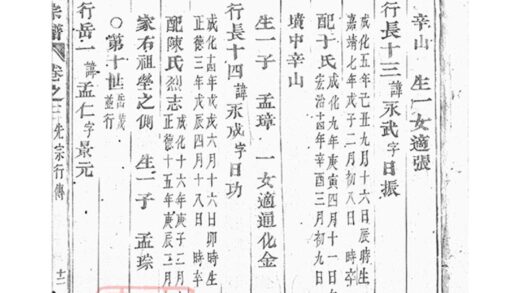 辛山 生一女適張
行長十三諱永武字日振
成化五年己丑九月十六日辰時生
嘉靖七年戊子二月初八日時卒
配于氏成化九年庚寅四月十一日
宏治十四年辛酉三月初九日
墳中辛山
生一子 孟璋 一女適通化金
行長十四諱永成字日功
成化十四年戊戌六月十六日卯時生
正德三年戊辰四月十八日時卒
配陳氏烈志成化十六年庚子二月
正德十五年庚辰二月
家右祖塋之側 生一子 孟琮
○第十世岳
並行
行岳一諱孟仁字景元
宗譜 卷之三 先宗行傳 十二